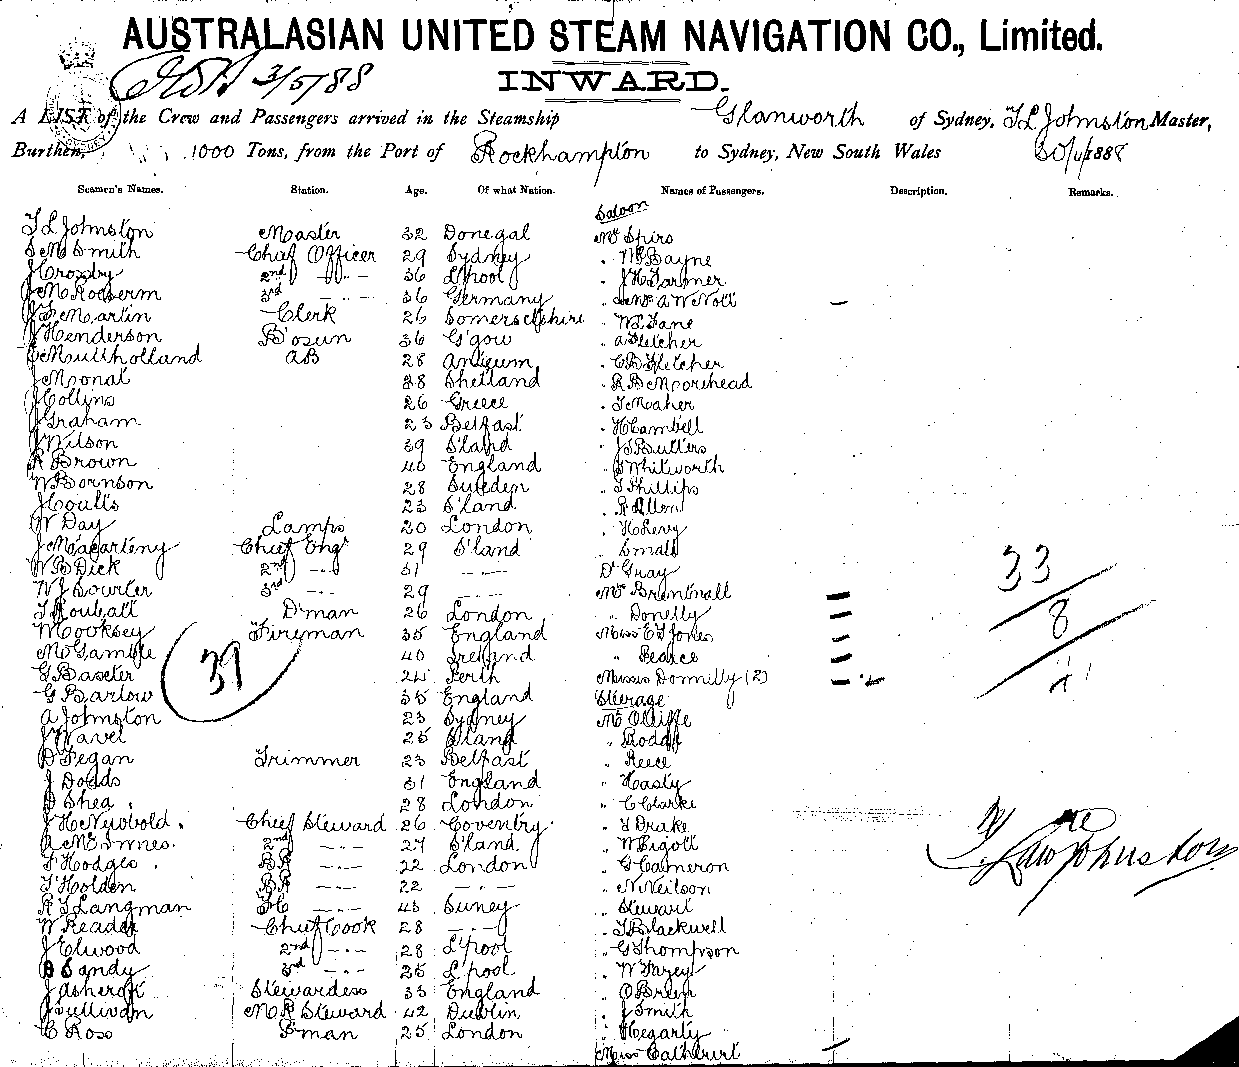 AUSTRALASIAN UNITED STEAM NAVIGATION CO., Limited.
3/5/88
INWARD.
A LIST of the Crew and Passengers arrived in the Steamship Glanworth of Sydney, T L Johnston Master,
Burthen, 1000 Tons, from the Port of Rockhampton to Sydney, New South Wales 30/4/1888
Seamen's Names. Station. Age. Of what Nation. Names of Passengers. Description. Remarks.
Saloon
T L Johnston Master 32 Donegal Mr Spiro
S M Smith Chief Officer 29 Sydney " Bayne
J Crosby 2nd " 36 L'pool " J H Gardner
3rd " 36 Germany "
J S Martin Clerk 26 Somersetshire " W Lane
J Henderson B'osun 36 G'gow " A Fletcher
Mullholland AB 28 Antigum " C B Fletcher
J 38 Shetland " R B Moorehead
J Collins 26 Greece " T Maher
J Graham 23 Belfast " H Cambell
J Wilson 39 S'land " J S Butters
R Brown 40 England " J Whitworth
W Bornson 28 Sweden " T Phillips
J Coults 23 S'land " R Allen
W Day Lamps 20 London " H Levy
J Chief Engr 29 S'land " Small
W B Dick 2nd " 31 " Dr Gray
W J Sourter 3rd " 29 " Mr Brentnall
D'man 26 London " Donelly
W Cooksey Fireman 35 England Miss E T Jones
M Gamble 40 Ireland " Pearce
G Baxter 24 Perth Misses Donnilly (2)
G Barlow 35 England Steerage
A Johnston 23 Sydney Mr
J Wavel 25 S'land "
D Fegan Trimmer 23 Belfast " Reece
J Dodds 31 England " Hasty
D Shea 28 London " C Clarke
J H Newbold Chief Steward 26 Coventry " T Drake
A McInnes 2nd " 27 S'land " W Pigott
T Hodges BR " 22 London " G Cameron
T Holden BR " 22 " " N Neilson
R T Langman " 43 Surrey " Stewart
W Reader Chief Cook 28 " " T Blackwell
J Elwood 2nd " 28 L'pool " G Thompson
Sandy 3rd " 35 L'pool " W Farey
J Ashcroft Stewardess 33 England " O'Brien
J Sullivan M R Steward 42 Dublin " J Smith
C Ross F'man 25 London " Hegarty
Miss Cathcart
39
33
8